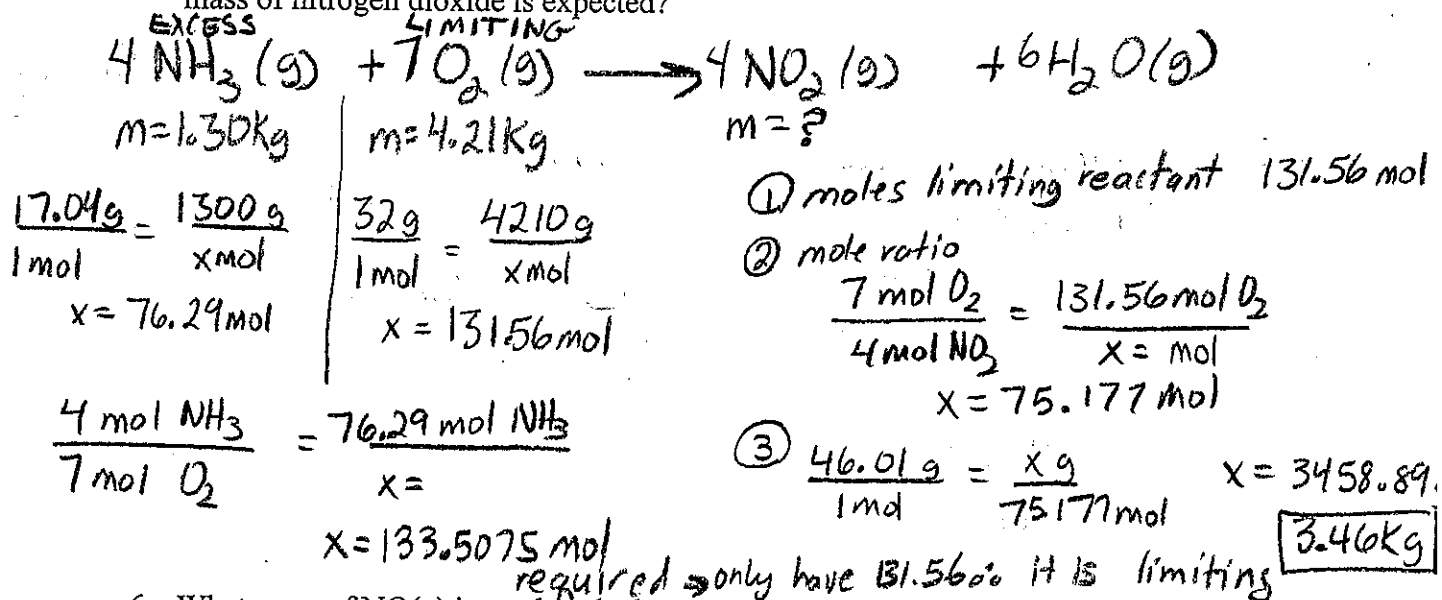 mass of nitrogen dioxide is expected?
EXCESS LIMITING
4 NH₃(g) + 7 O₂(g) → 4 NO₂(g) + 6 H₂O(g)
m=1.30Kg m=4.21Kg m=?
17.04g/1mol = 1300g/xmol
x=76.29mol
32g/1mol = 4210g/xmol
x=131.56mol
4 mol NH₃/7 mol O₂ = 76.29 mol NH₃/x=
x=133.5075 mol
required → only have 131.56 ∴ it is limiting
① moles limiting reactant 131.56 mol
② mole ratio
7 mol O₂/4 mol NO₂ = 131.56 mol O₂/x= mol
x=75.177 mol
③ 46.01 g/1mol = x g/75.177 mol x=3458.89
3.46Kg